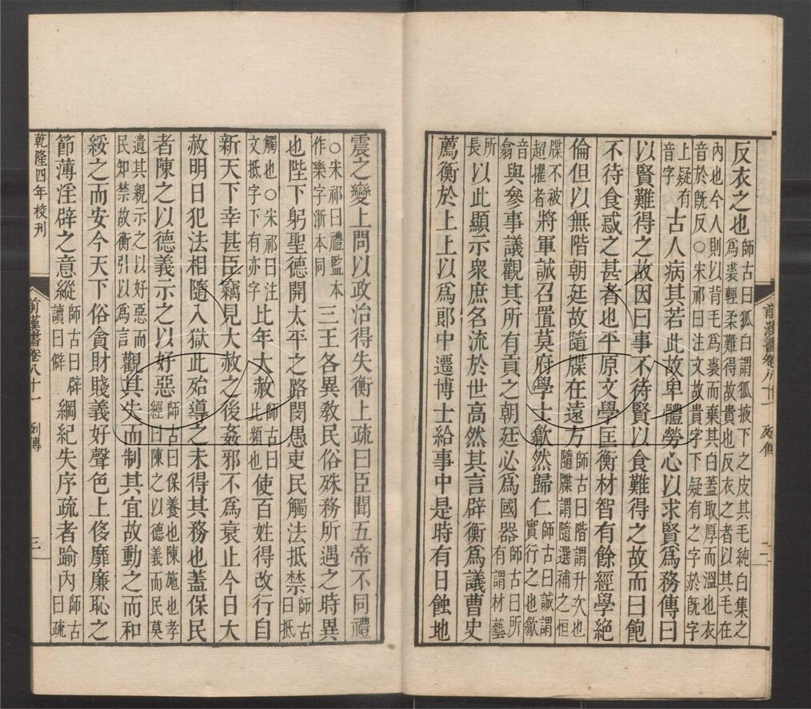 反衣之也師古曰狐白謂狐掖下之皮其毛純白集之爲裘輕柔難得故貴也反衣之者以其毛在
內也今人則以背毛爲裘而棄其白蓋取厚而溫也衣音於旣反○宋祁曰注文故貴字下疑有之字於旣字
上疑有音字古人病其若此故卑體勞心以求賢爲務傳曰
以賢難得之故因曰事不待賢以食難得之故而曰飽
不待食惑之甚者也平原文學匡衡材智有餘經學絕
倫但以無階朝廷故隨牒在遠方師古曰階謂升次也隨牒謂隨選補之恒
牒不被超擢者將軍誠召置莫府學士歙然歸仁師古曰誠謂實行之也歙
音翕與參事議觀其所有貢之朝廷必爲國器師古曰所有謂材藝
所長以此顯示衆庶名流於世高然其言辟衡爲議曹史
薦衡於上上以爲郎中遷博士給事中是時有日蝕地
前漢書卷八十一 列傳 二
震之變上問以政治得失衡上疏曰臣聞五帝不同禮
○宋祁曰禮監本作樂字浙本同三王各異敎民俗殊務所遇之時異
也陛下躬聖德開太平之路閔愚吏民觸法抵禁師古曰抵
觸也○宋祁曰注文抵字下有亦字比年大赦師古曰比頻也使百姓得改行自
新天下幸甚臣竊見大赦之後姦邪不爲衰止今日大
赦明日犯法相隨入獄此殆導之未得其務也蓋保民
者陳之以德義示之以好惡師古曰保養也陳施也孝經曰陳之以德義而民莫
遺其親示之以好惡而民知禁故衡引以爲言觀其失而制其宜故動之而和
綏之而安今天下俗貪財賤義好聲色上侈靡廉恥之
節薄淫辟之意縱師古曰辟讀曰僻綱紀失序疏者踰內師古曰疏
乾隆四年校刊 前漢書卷八十一 列傳 三